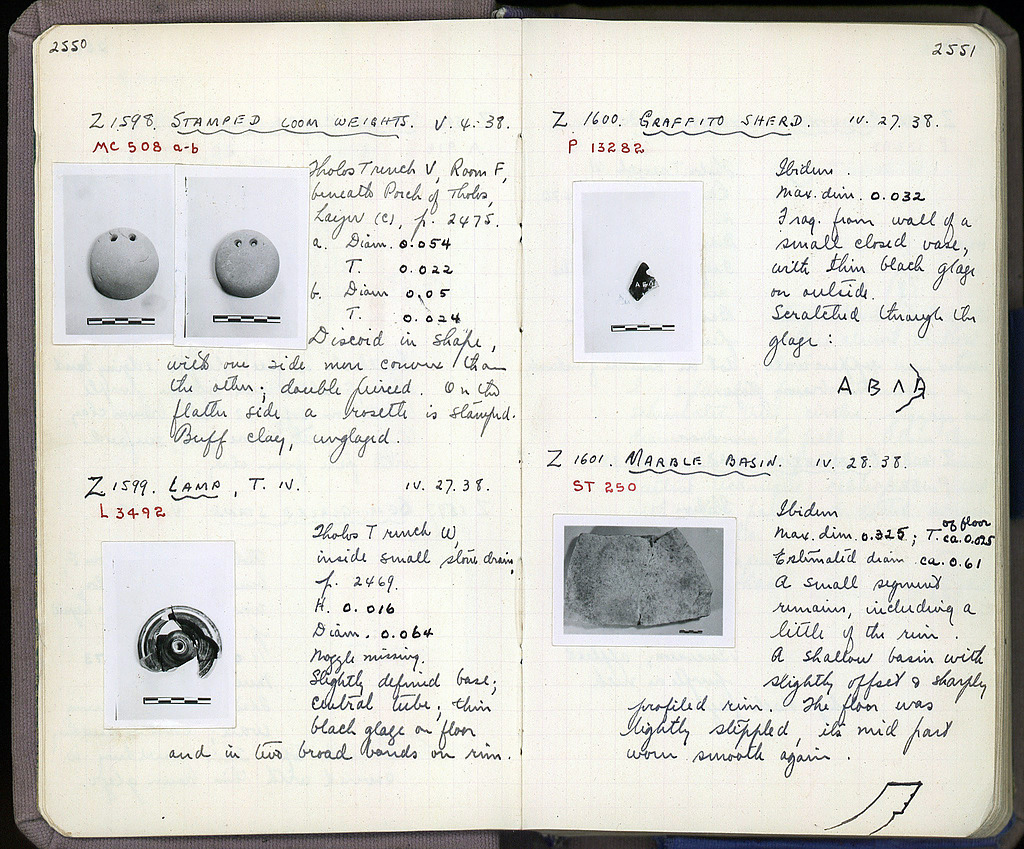 2550
Z 1598. STAMPED LOOM WEIGHTS. V. 4. 38.
MC 508 a-b
Tholos Trench V, Room F,
beneath Porch of Tholos,
Layer (c), p. 2475.
a. Diam. 0.054
T. 0.022
b. Diam 0.05
T. 0.024
Discoid in shape,
with one side more convex than
the other; double pierced. On the
flatter side a rosette is stamped.
Buff clay, unglazed.
Z 1599. LAMP, T. IV. IV. 27. 38.
L 3492
Tholos Trench W,
inside small stone drain,
p. 2469.
H. 0.016
Diam. 0.064
Nozzle missing.
Slightly defined base;
central tube; thin
black glaze on floor
and in two broad bands on rim.
2551
Z 1600. GRAFFITO SHERD. IV. 27. 38.
P 13282
Ibidem.
Max. dim. 0.032
Frag. from wall of a
small closed vase,
with thin black glaze
on outside.
Scratched through the
glaze:
Α Β Λ
Z 1601. MARBLE BASIN. IV. 28. 38.
ST 250
Ibidem
Max. dim. 0.325; T. of floor ca. 0.025
Estimated diam ca. 0.61
A small segment
remains, including a
little of the rim.
A shallow basin with
slightly offset & sharply
profiled rim. The floor was
lightly stippled, its mid part
worn smooth again.